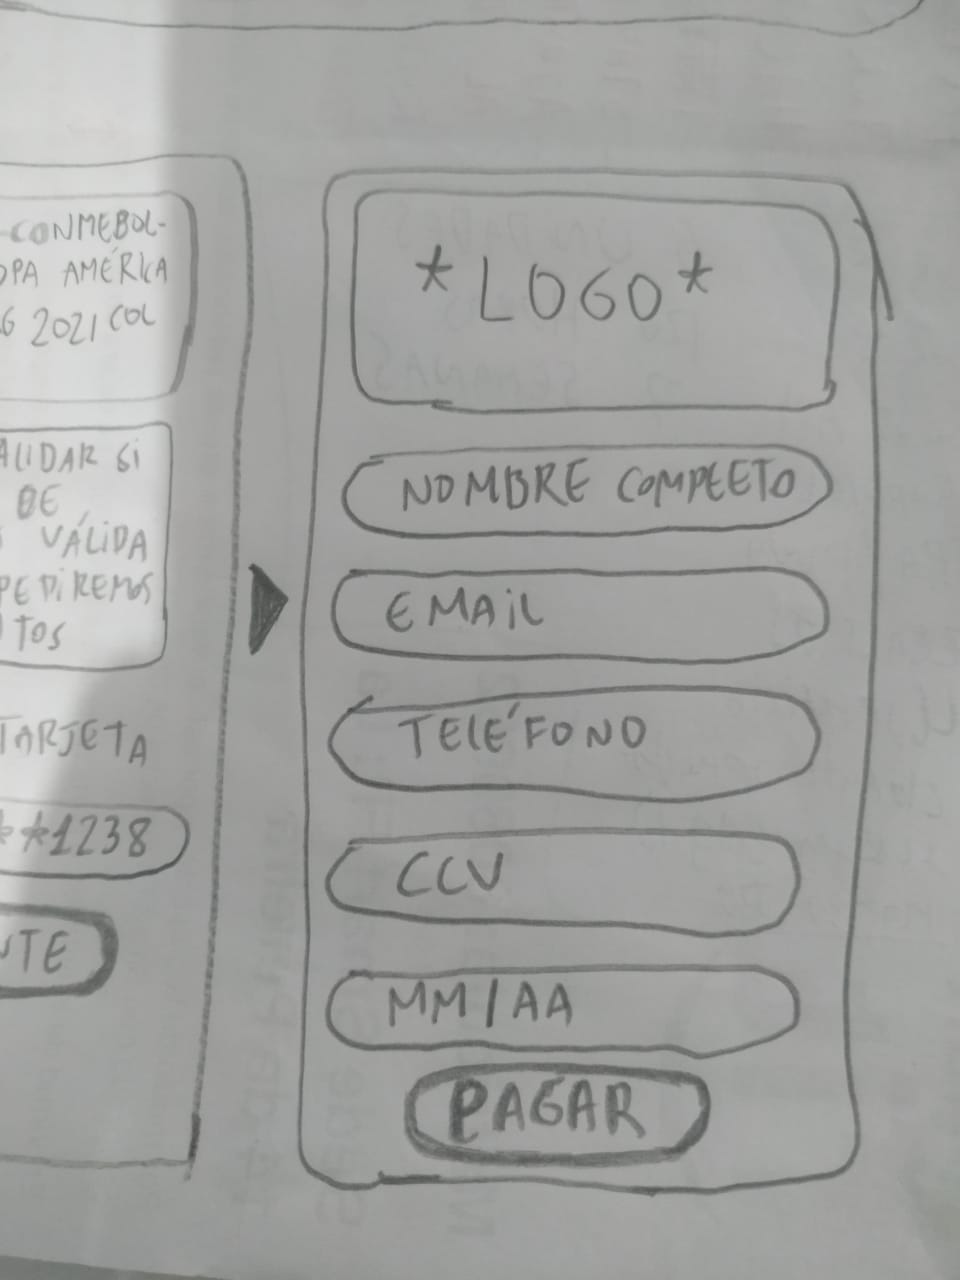 -CONMEBOL-
OPA AMÉRICA
G 2021 COL
ALIDAR Si
DE
VÁLIDA
PEDiREMOS
TOS
TARJETA
**1238
NTE
*LOGO*
NOMBRE COMPLETO
EMAiL
TELÉFONO
CCV
MM/AA
PAGAR